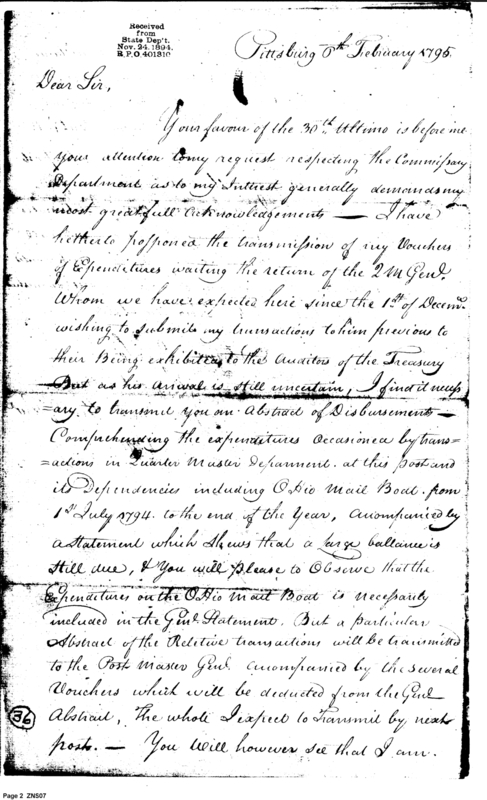 Received
from
State Dep't.
Nov. 24, 1894.
R.P.O. 401310
Pittsburg 6th February 1795.
Dear Sir,
Your favour of the 30th Ultimo is before me
your attention to my request respecting the Commissary
Department as to my Intrest generally demands my
most greatfull Acknowledgements — I have
hetherto posponed the transmission of my Vouchers
of Expenditures waiting the return of the Q M Genl.
Whom we have expected here since the 1st of Decemr.
wishing to submit my transactions to him previous to
their Being exhibited to the Auditor of the Treasury
But as his arival is still uncertain, I find it necess
=ary to transmit you an Abstract of Disbursements —
Comprehending the expenditures occasioned by trans=
=actions in Quarter Master Deparment at this post and
its Dependencies including O,Hio Mail Boat from
1st July 1794. to the end of the Year, acompanied by
a Statement which shews that a large ballance is
still due, & You will please to Observe that the
Expenditures on the O,Hio Mail Boat is necessarily
included in the Genl. Statement. But a particular
Abstract of the Reletive transactions will be transmitted
to the Post Master Genl. acompanied by the several
Vouchers which will be deducted from the Genl
Abstract, The whole I expect to Transmit by next
post. — You Will however see that I am.
36
Page 2 ZNS07